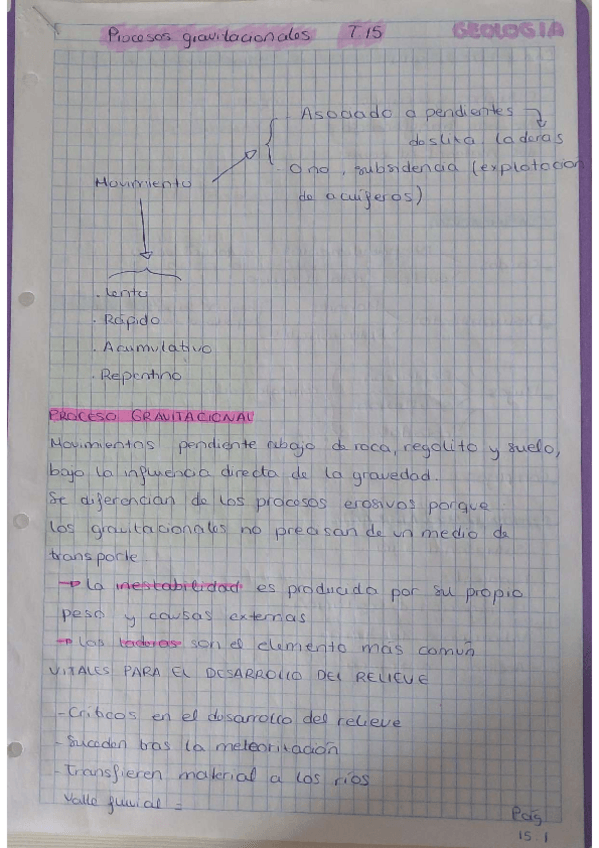 Procesos gravitacionales T.15 GEOLOGIA
Asociado a pendientes
desliza. laderas
O no, subsidencia (explotacion
de acuíferos)
Movimiento
. Lento
. Rápido
. Acumulativo
. Repentino
PROCESO GRAVITACIONAL
Movimientos pendiente abajo de roca, regolito y suelo,
bajo la influencia directa de la gravedad.
Se diferencian de los procesos erosivos porque
los gravitacionales no precisan de un medio de
transporte
→ La inestabilidad es producida por su propio
peso y causas externas
→ Las laderas son el elemento más común
VITALES PARA EL DESARROLLO DEL RELIEVE
- Críticos en el desarrollo del relieve
- Suceden tras la meteorización
- Transfieren material a los ríos
Valle fluvial =
Pág
15.1